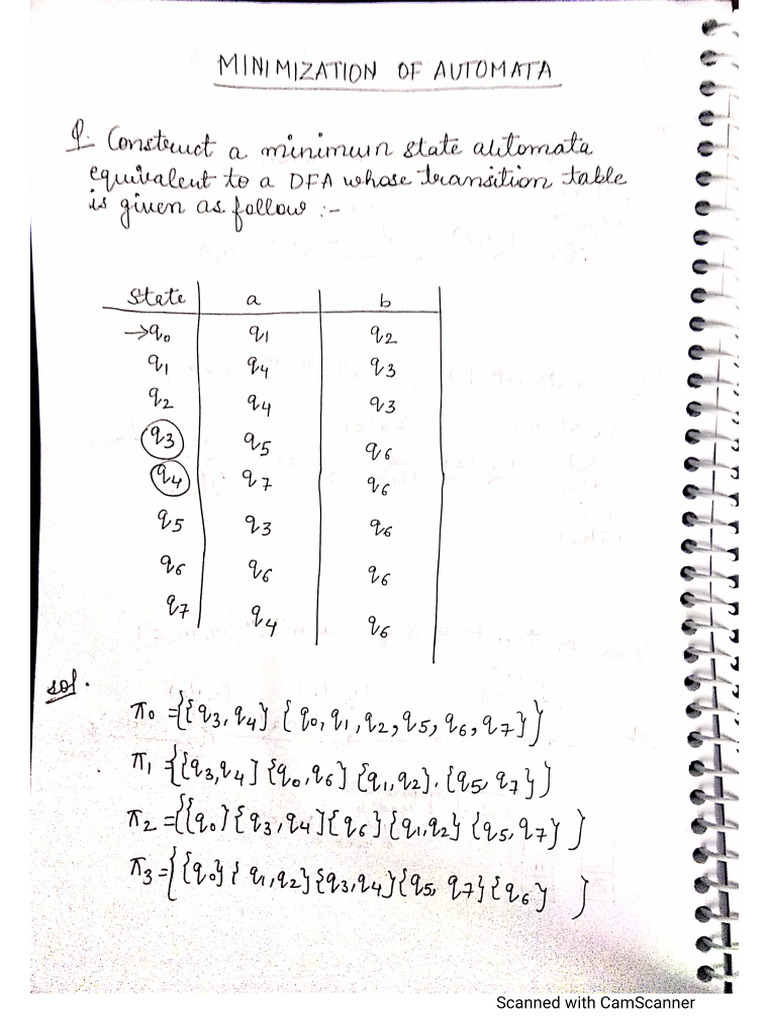 MINIMIZATION OF AUTOMATA
Q. Construct a minimum state automata
equivalent to a DFA whose transition table
is given as follow :-
State a b
→q0 q1 q2
q1 q4 q3
q2 q4 q3
q3 q5 q6
q4 q7 q6
q5 q3 q6
q6 q6 q6
q7 q4 q6
sol.
π0 = {{q3, q4} {q0, q1, q2, q5, q6, q7}}
π1 = {{q3, q4} {q0, q6} {q1, q2}. {q5, q7}}
π2 = {{q0} {q3, q4} {q6} {q1, q2} {q5, q7}}
π3 = {{q0} {q1, q2} {q3, q4} {q5, q7} {q6}}
Scanned with CamScanner